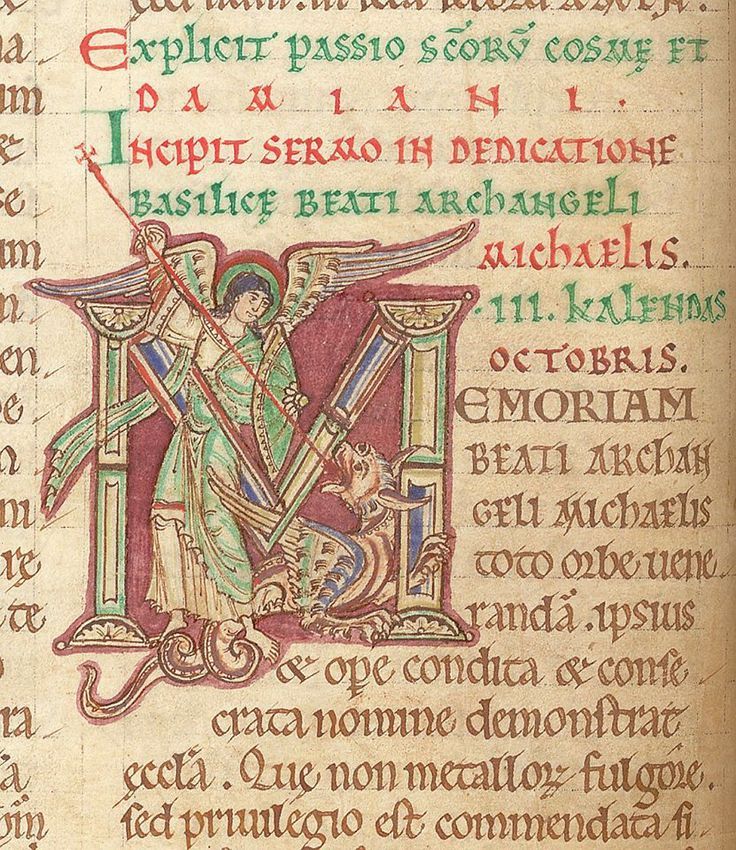 Explicit passio sc̄orv̄ cosmę et
DAMIANI.
Incipit sermo in dedicatione
basilicę beati archangeli
michaelis.
·III. kalendas
octobris.
MEMORIAM
BEATI ARCHAN
GELI MICHAELIS
toto orbe uene
randā. ipsius
& ope condita & conse
crata nomine demonstrat
ęccl̄a. Quę non metalloꝝ fulgore.
sed priuilegio est commendata si